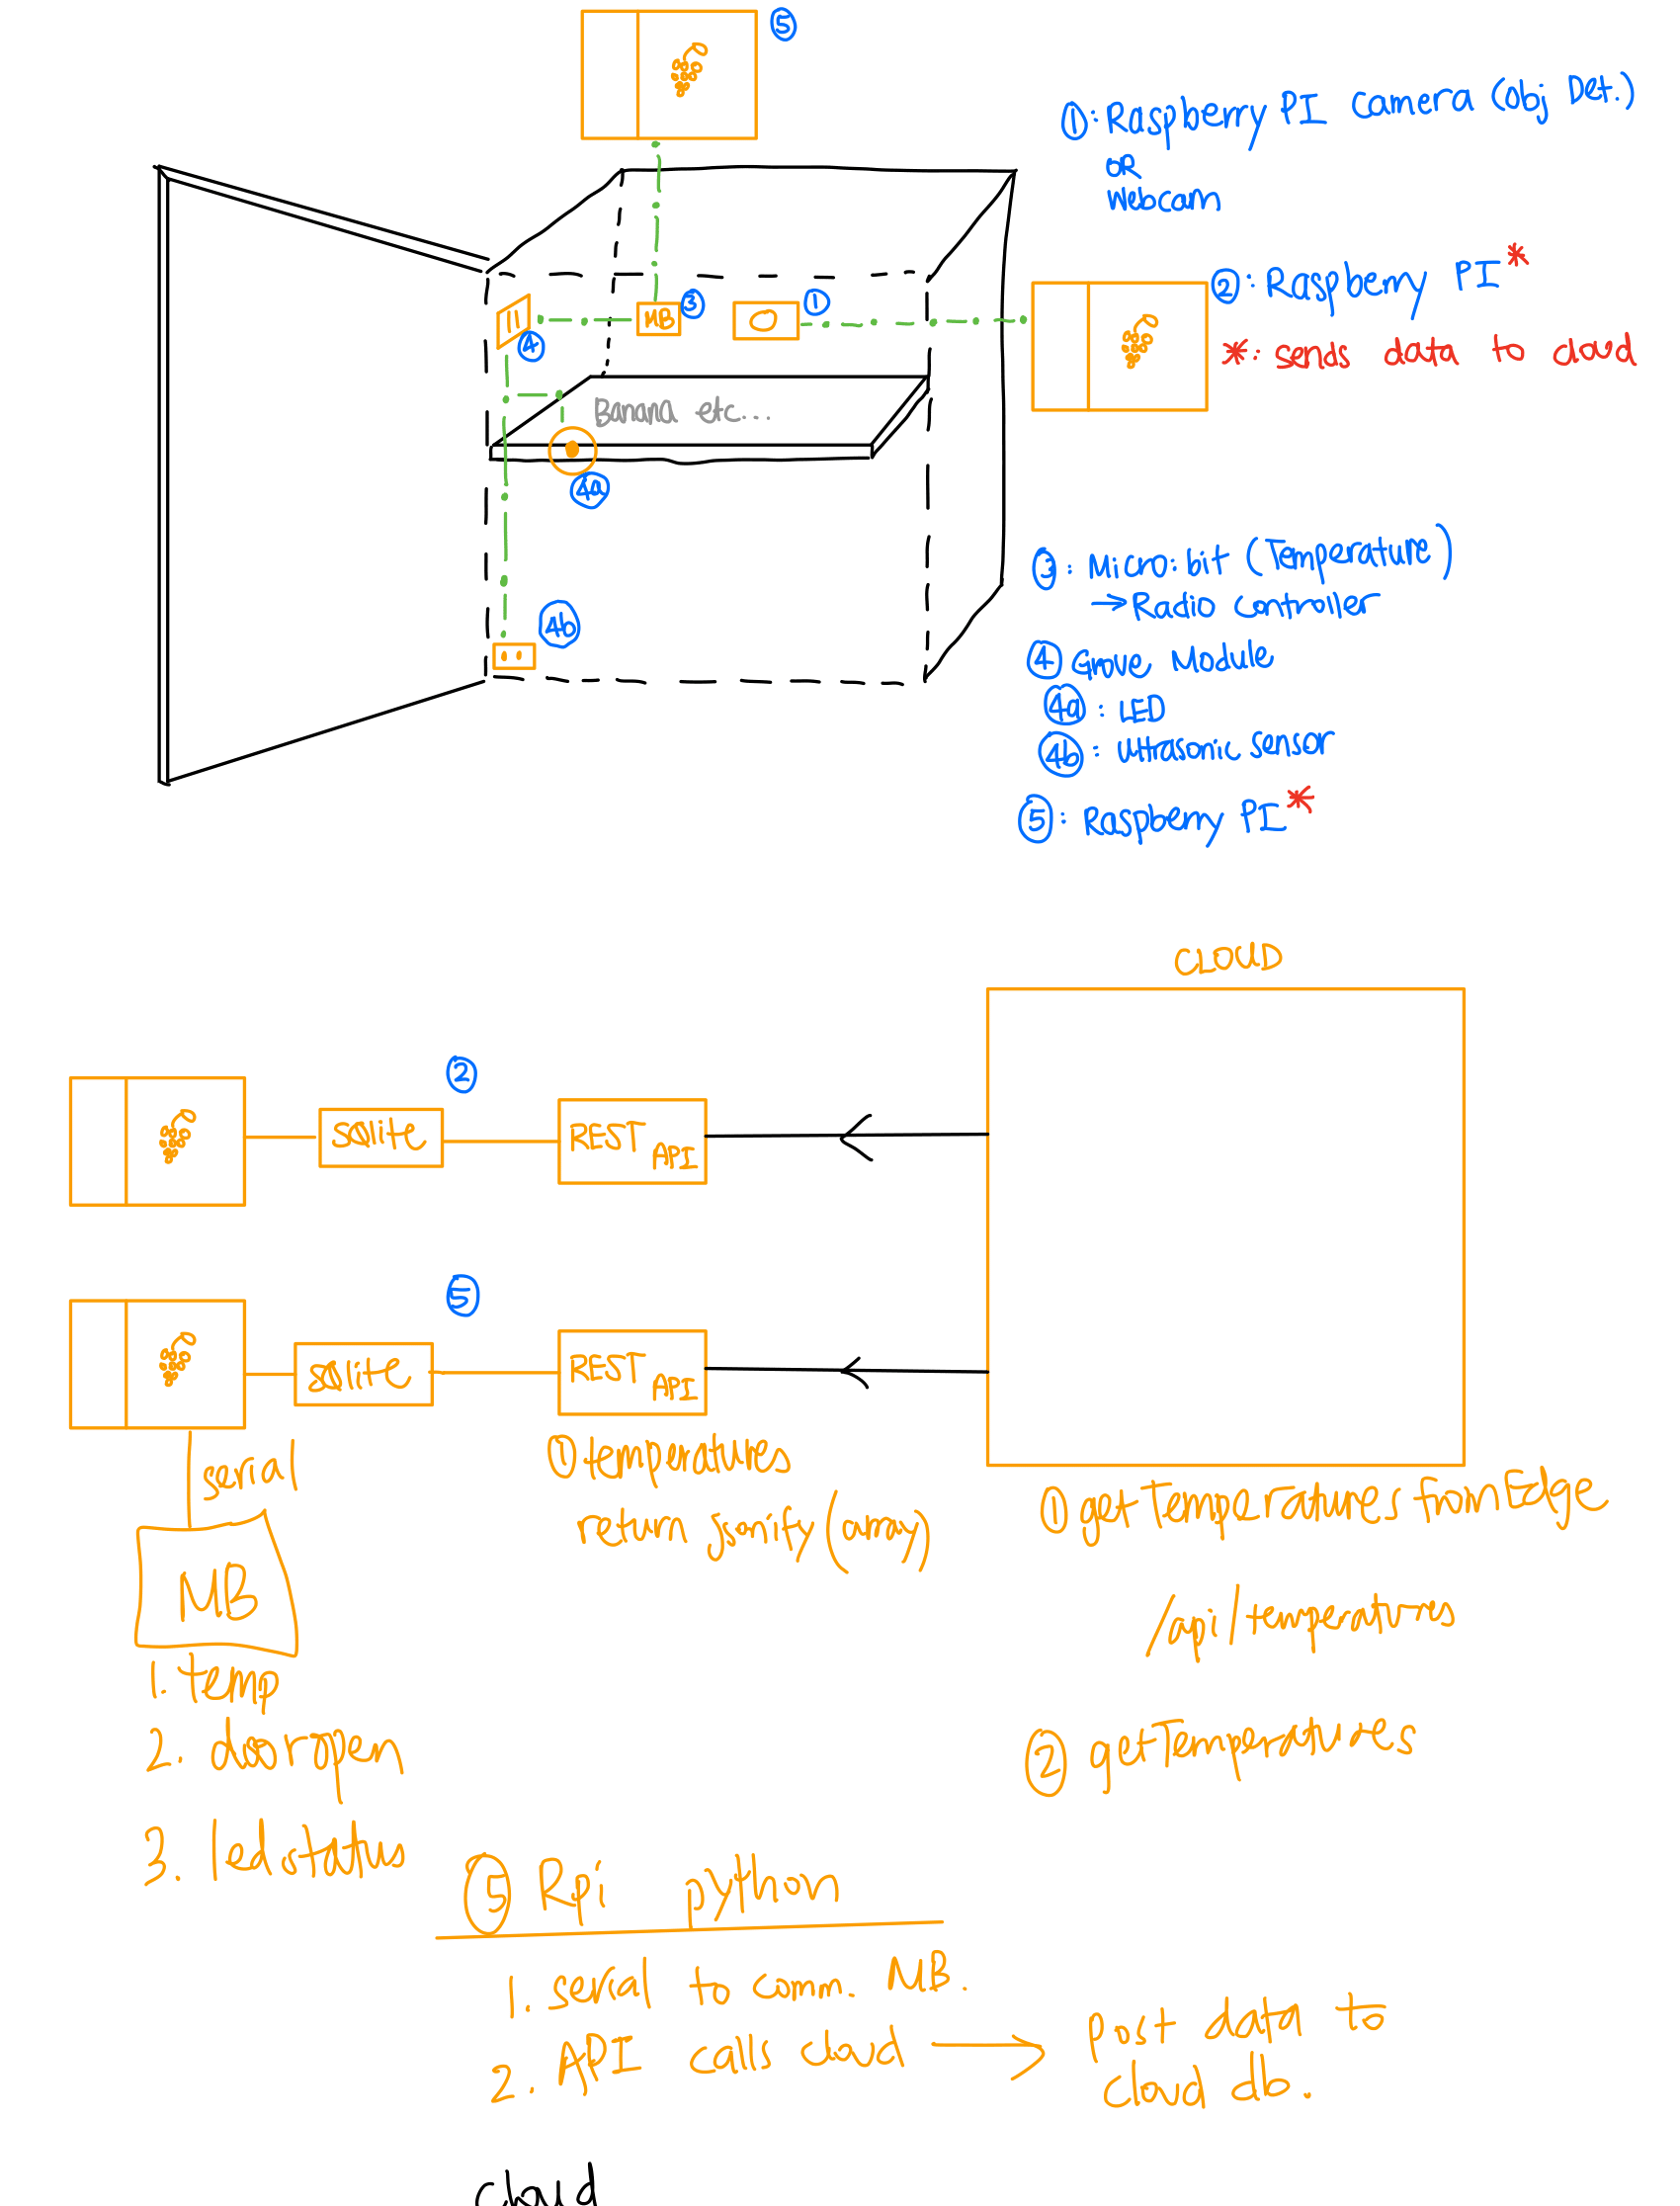 ⑤
①: Raspberry PI camera (obj Det.)
OR
Webcam
②: Raspberry PI*
*: sends data to cloud
MB ③
①
④
Banana etc...
4a
4b
③: Micro:bit (Temperature)
→ Radio controller
④ Grove Module
4a : LED
4b : ultrasonic sensor
⑤: Raspberry PI*
CLOUD
②
sqlite
REST API
⑤
sqlite
REST API
serial
MB
1. temp
2. dooropen
3. ledstatus
① temperatures
return jsonify (array)
① getTemperatures fromEdge
/api/temperatures
② getTemperatures
⑤ Rpi python
1. serial to comm. MB.
2. API calls cloud → post data to
cloud db.
cloud